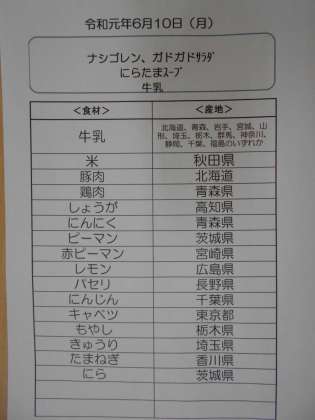 令和元年6月10日（月）
ナシゴレン、ガドガドサラダ
にらたまスープ
牛乳
＜食材＞ ＜産地＞
牛乳 北海道、青森、岩手、宮城、山
形、埼玉、栃木、群馬、神奈川、
静岡、千葉、福島のいずれか
米 秋田県
豚肉 北海道
鶏肉 青森県
しょうが 高知県
にんにく 青森県
ピーマン 茨城県
赤ピーマン 宮崎県
レモン 広島県
パセリ 長野県
にんじん 千葉県
キャベツ 東京都
もやし 栃木県
きゅうり 埼玉県
たまねぎ 香川県
にら 茨城県